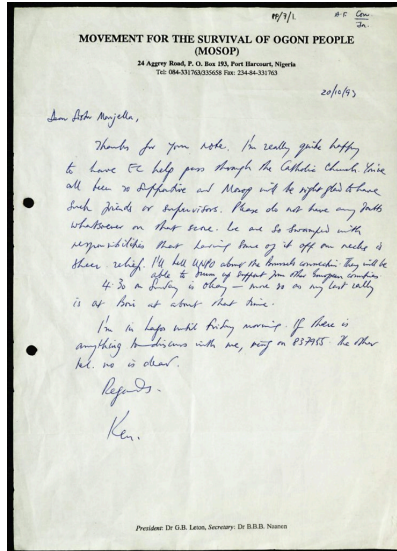 PP/7/1.
A.F. Con.
MOVEMENT FOR THE SURVIVAL OF OGONI PEOPLE
(MOSOP)
24 Aggrey Road, P. O. Box 193, Port Harcourt, Nigeria
Tel: 084-331763/335658 Fax: 234-84-331763
20/10/93
Dear Sister Majella,
Thanks for your note. I'm really quite happy
to have EC help pass through the Catholic Church. You've
all been so supportive and Mosop will be right glad to have
such friends or supervisors. Please do not have any doubts
whatsoever on that score. We are so swamped with
responsibilities that having some of it off our necks is
sheer relief. I'll tell UNPO about the Brussels connection. They will be
able to drum up support from other European countries
4.30 on Sunday is okay – more so as my last rally
is at Bori at about that time.
I'm in Lagos until Friday morning. If there is
anything to discuss with me, ring on 837955. The other
tel. no is dead.
Regards.
Ken.
President: Dr G.B. Leton, Secretary: Dr B.B.B. Naanen